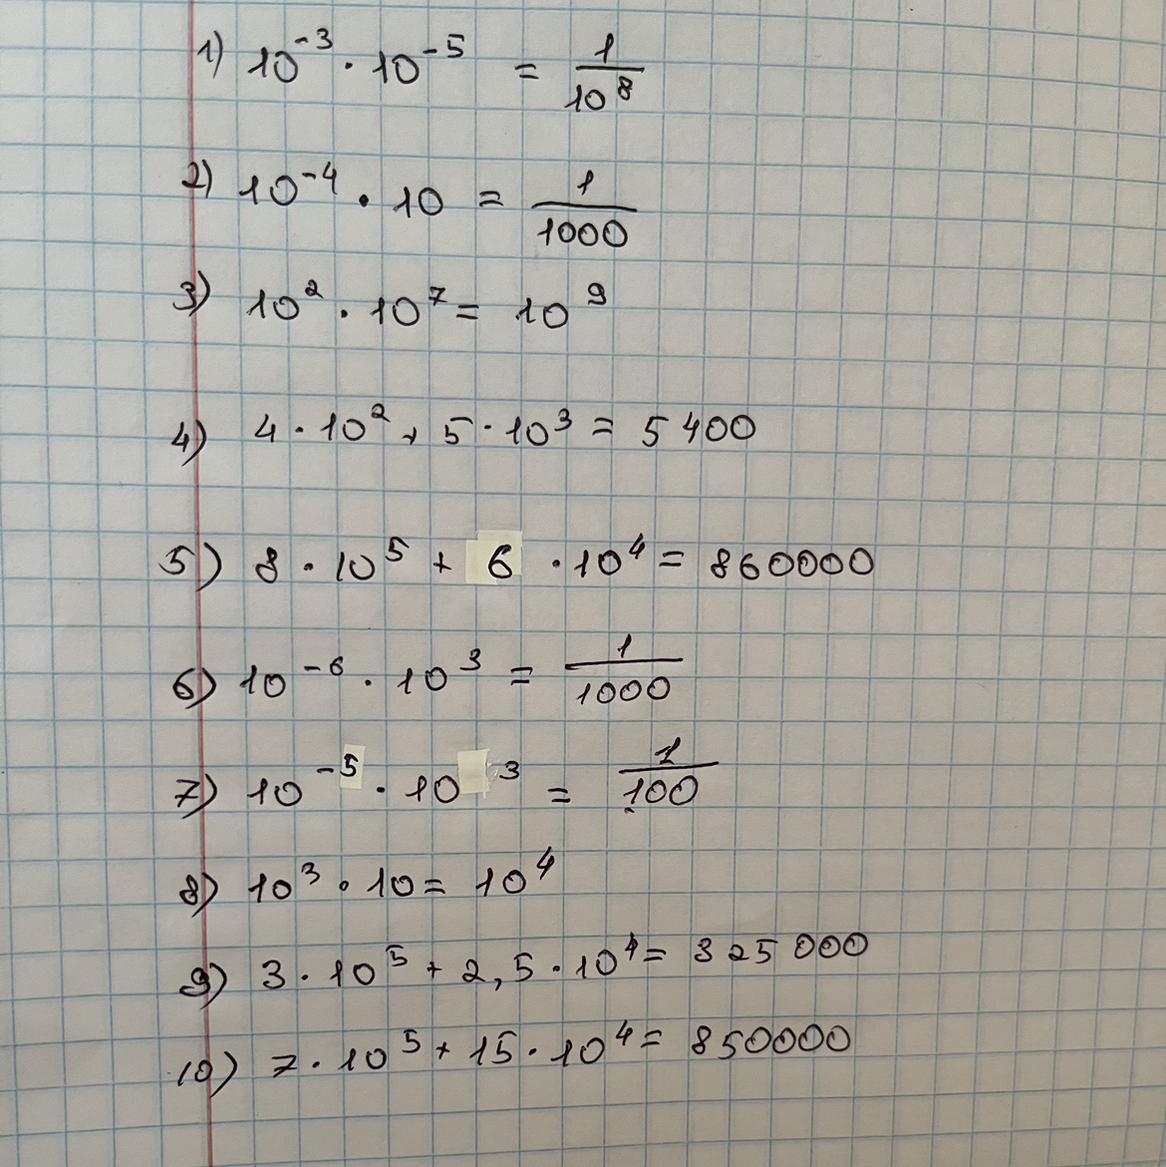 1) 10⁻³ · 10⁻⁵ = 1/10⁸
2) 10⁻⁴ · 10 = 1/1000
3) 10² · 10⁷ = 10⁹
4) 4 · 10² + 5 · 10³ = 5400
5) 8 · 10⁵ + 6 · 10⁴ = 860000
6) 10⁻⁶ · 10³ = 1/1000
7) 10⁻⁵ · 10³ = 1/100
8) 10³ · 10 = 10⁴
9) 3 · 10⁵ + 2,5 · 10⁴ = 325000
10) 7 · 10⁵ + 15 · 10⁴ = 850000